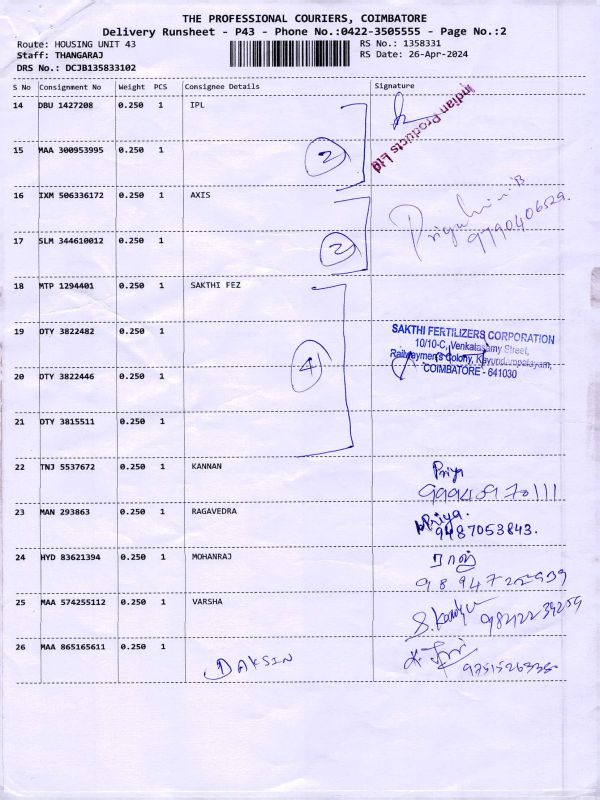 THE PROFESSIONAL COURIERS, COIMBATORE
Delivery Runsheet - P43 - Phone No.:0422-3505555 - Page No.:2
Route: HOUSING UNIT 43 RS No.: 1358331
Staff: THANGARAJ RS Date: 26-Apr-2024
DRS No.: DCJB135833102
S No Consignment No Weight PCS Consignee Details Signature
14 DBU 1427208 0.250 1 IPL
Indian Products Ltd
15 MAA 300953995 0.250 1 2
16 IXM 506336172 0.250 1 AXIS
9790406529
17 SLM 344610012 0.250 1 2
18 MTP 1294401 0.250 1 SAKTHI FEZ
SAKTHI FERTILIZERS CORPORATION
19 DTY 3822482 0.250 1
10/10-C, Venkatasamy Street,
Railwaymen's Colony, Kavundampalayam,
COIMBATORE - 641030
20 DTY 3822446 0.250 1 4
21 DTY 3815511 0.250 1
22 TNJ 5537672 0.250 1 KANNAN Priya
23 MAN 293863 0.250 1 RAGAVEDRA Priya.
9487053843.
24 HYD 83621394 0.250 1 MOHANRAJ ராஜ்
25 MAA 574255112 0.250 1 VARSHA
26 MAA 865165611 0.250 1 DAKSIN